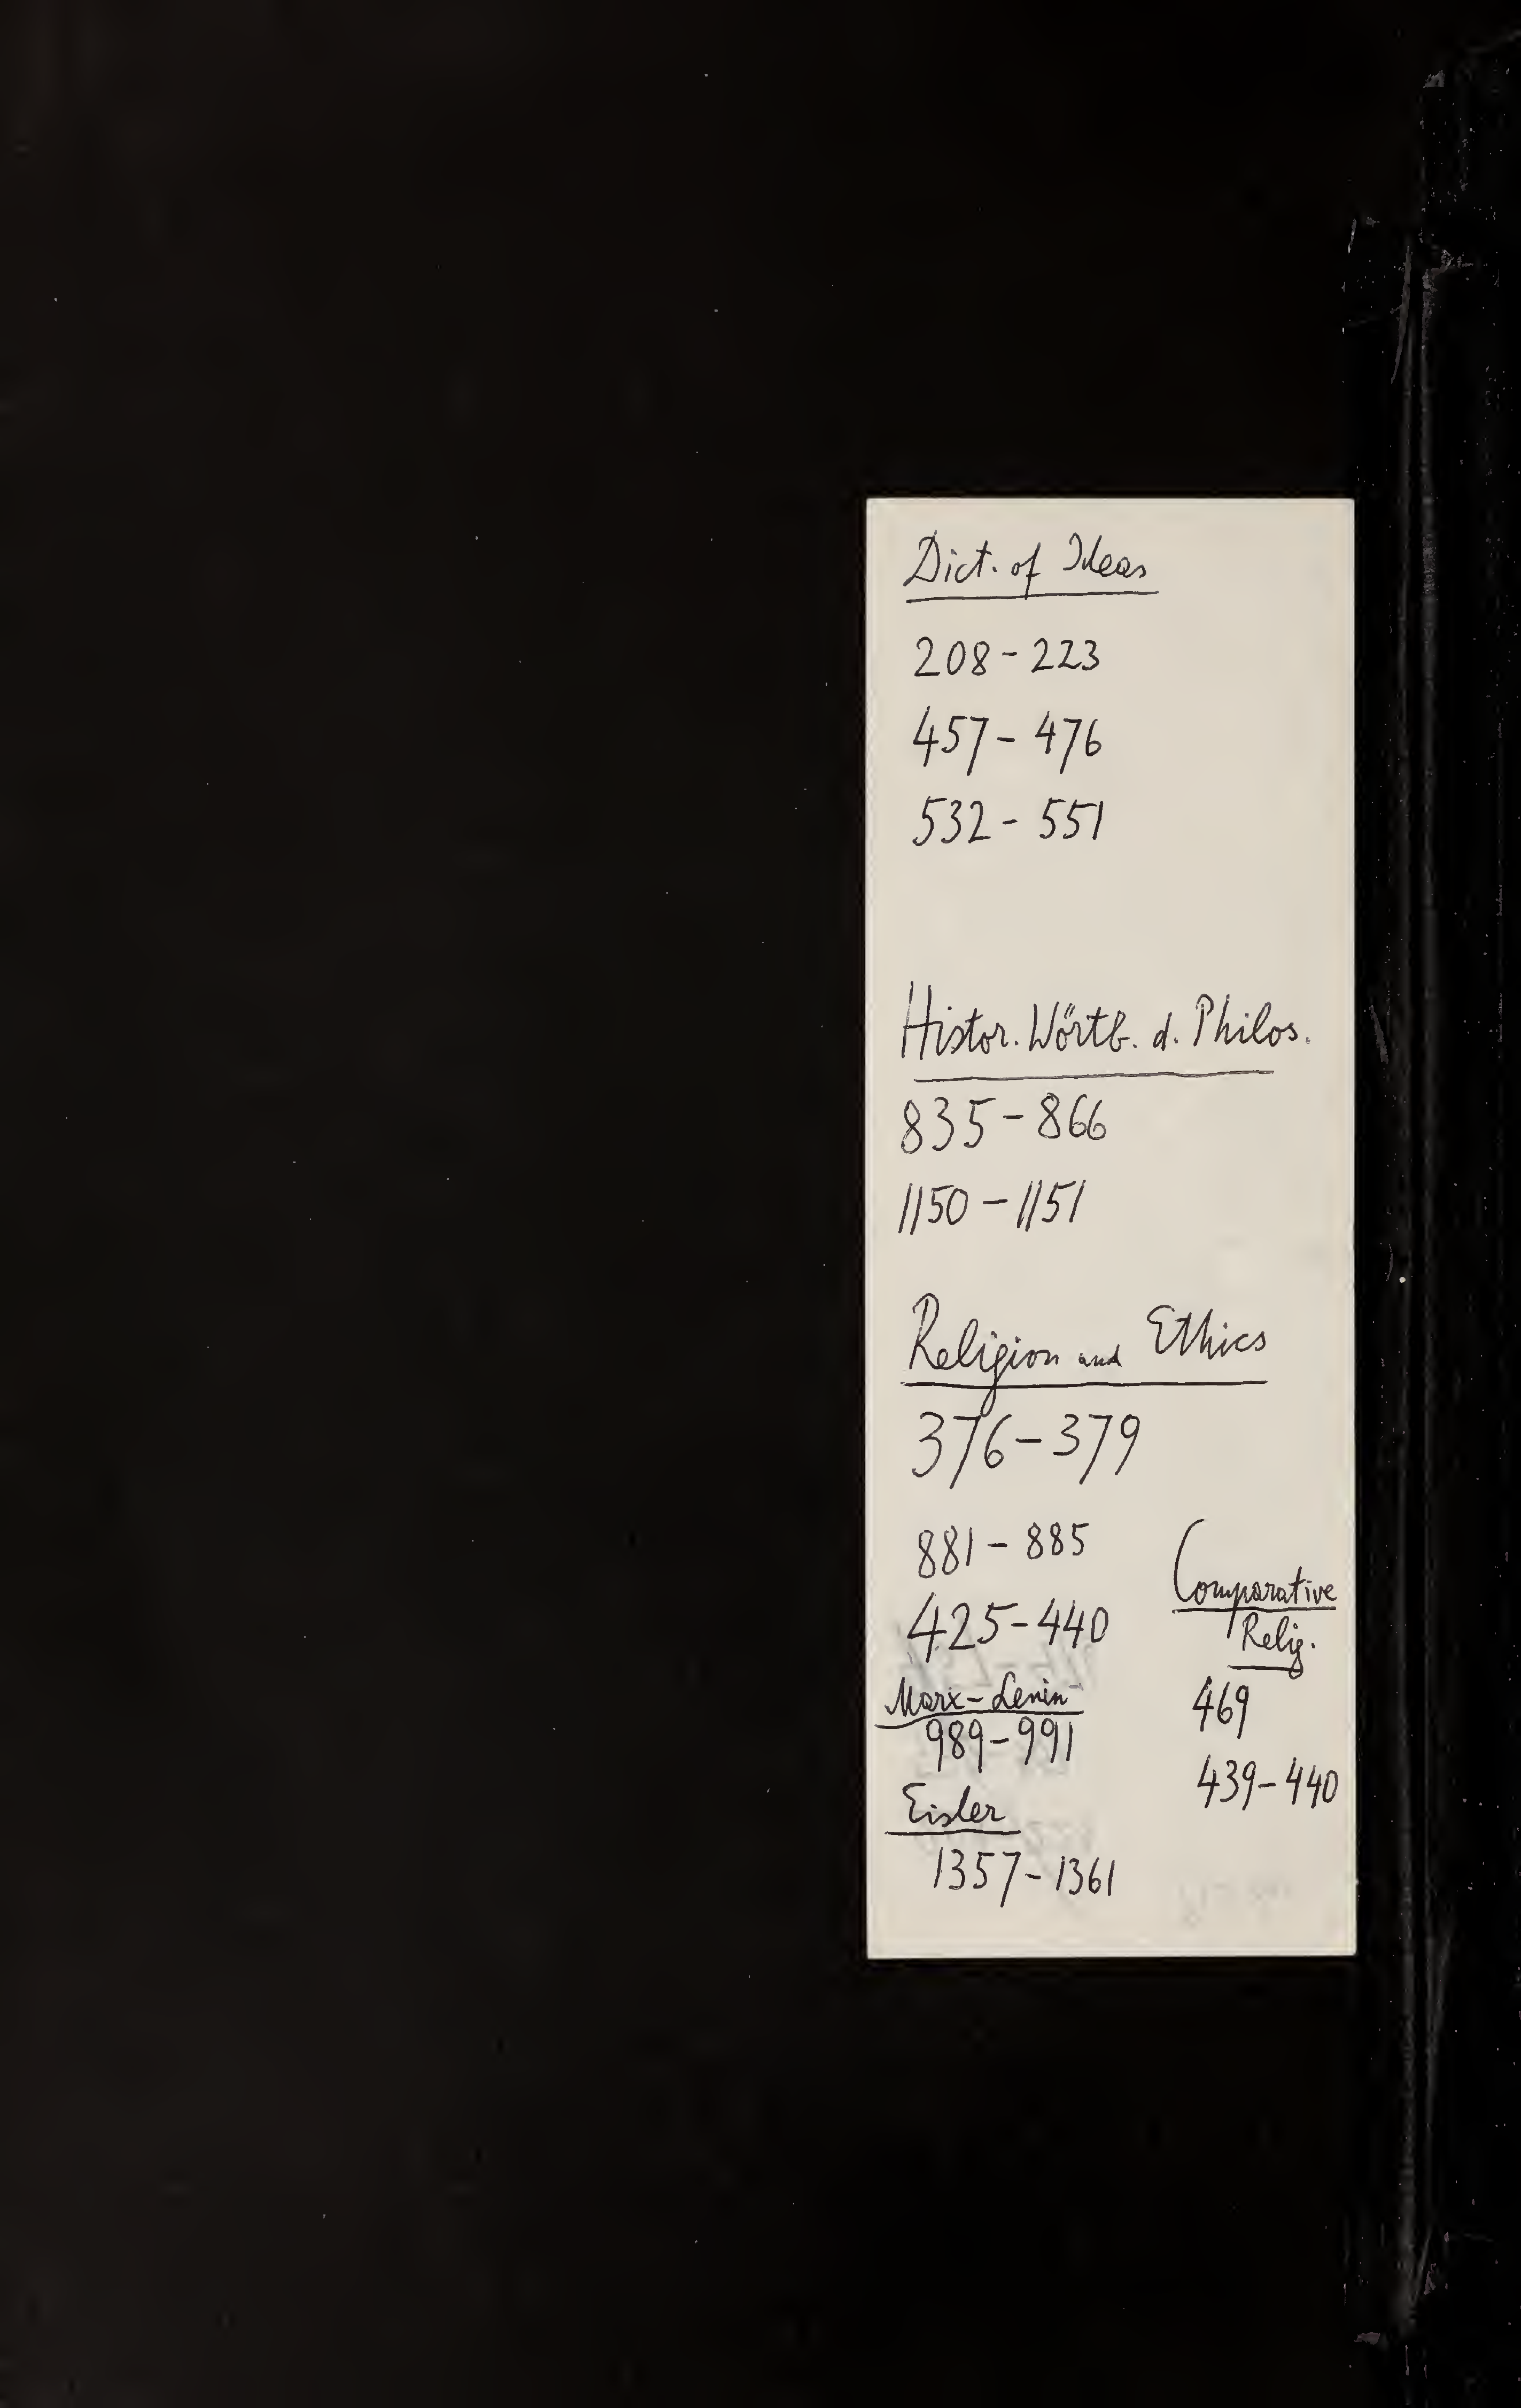 Dict. of Ideas
208 - 223
457 - 476
532 - 551
Histor. Wörtb. d. Philos.
835 - 866
1150 - 1151
Religion and Ethics
376 - 379
881 - 885
425 - 440
Marx - Lenin
989 - 991
Eisler
1357 - 1361
Comparative
Relig.
469
439 - 440